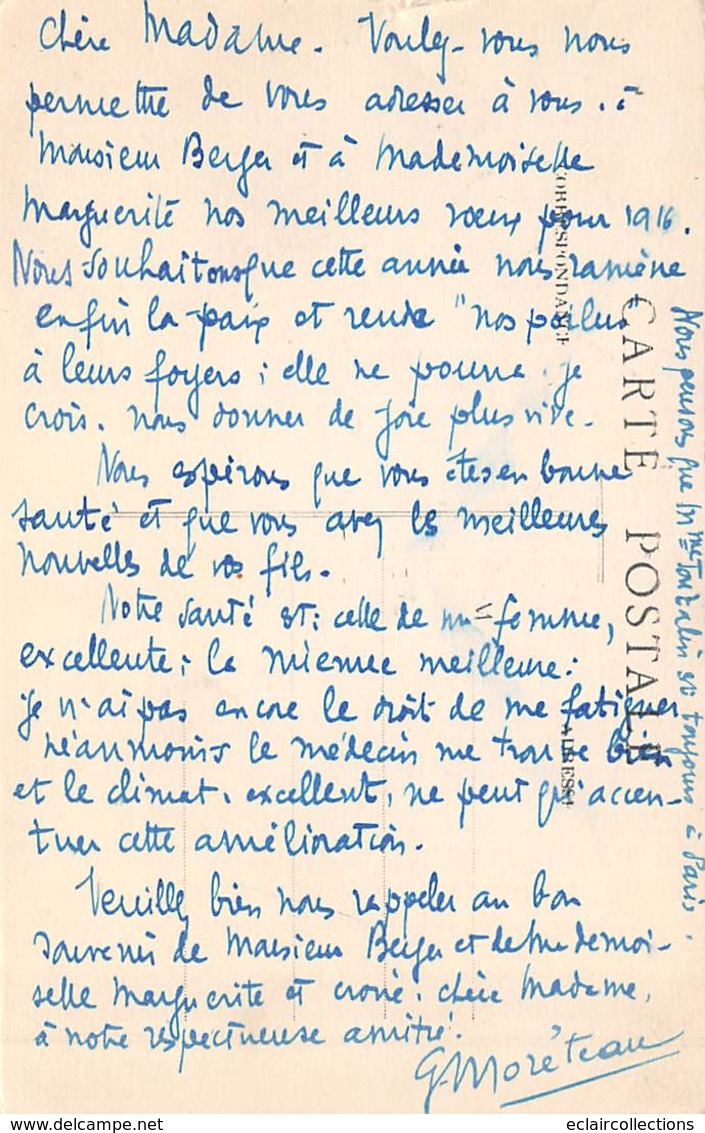 Chère Madame. Voulez-vous nous
permettre de vous adresser à vous. à
Monsieur Berger et à Mademoiselle
Marguerite nos meilleurs voeux pour 1916.
Nous souhaitons que cette année nous ramène
enfin la paix et rende "nos poilus
à leurs foyers ; elle ne pourra. je
crois. nous donner de joie plus vive.
Nous espérons que vous êtes en bonne
santé et que vous avez les meilleures
nouvelles de vos fils.
Notre santé est : celle de ma femme,
excellente ; la mienne meilleure :
je n'ai pas encore le droit de me fatiguer
néanmoins le médecin me trouve bien
et le climat. excellent, ne peut qu'accen-
tuer cette amélioration.
Veuillez bien nous rappeler au bon
souvenir de Monsieur Berger et de Mademoi-
selle Marguerite et croire. chère Madame,
à notre respectueuse amitié.
G. Moréteau
Nous pensons que Mme est toujours à Paris.
CARTE POSTALE
CORRESPONDANCE
ADRESSE
eclaircollections